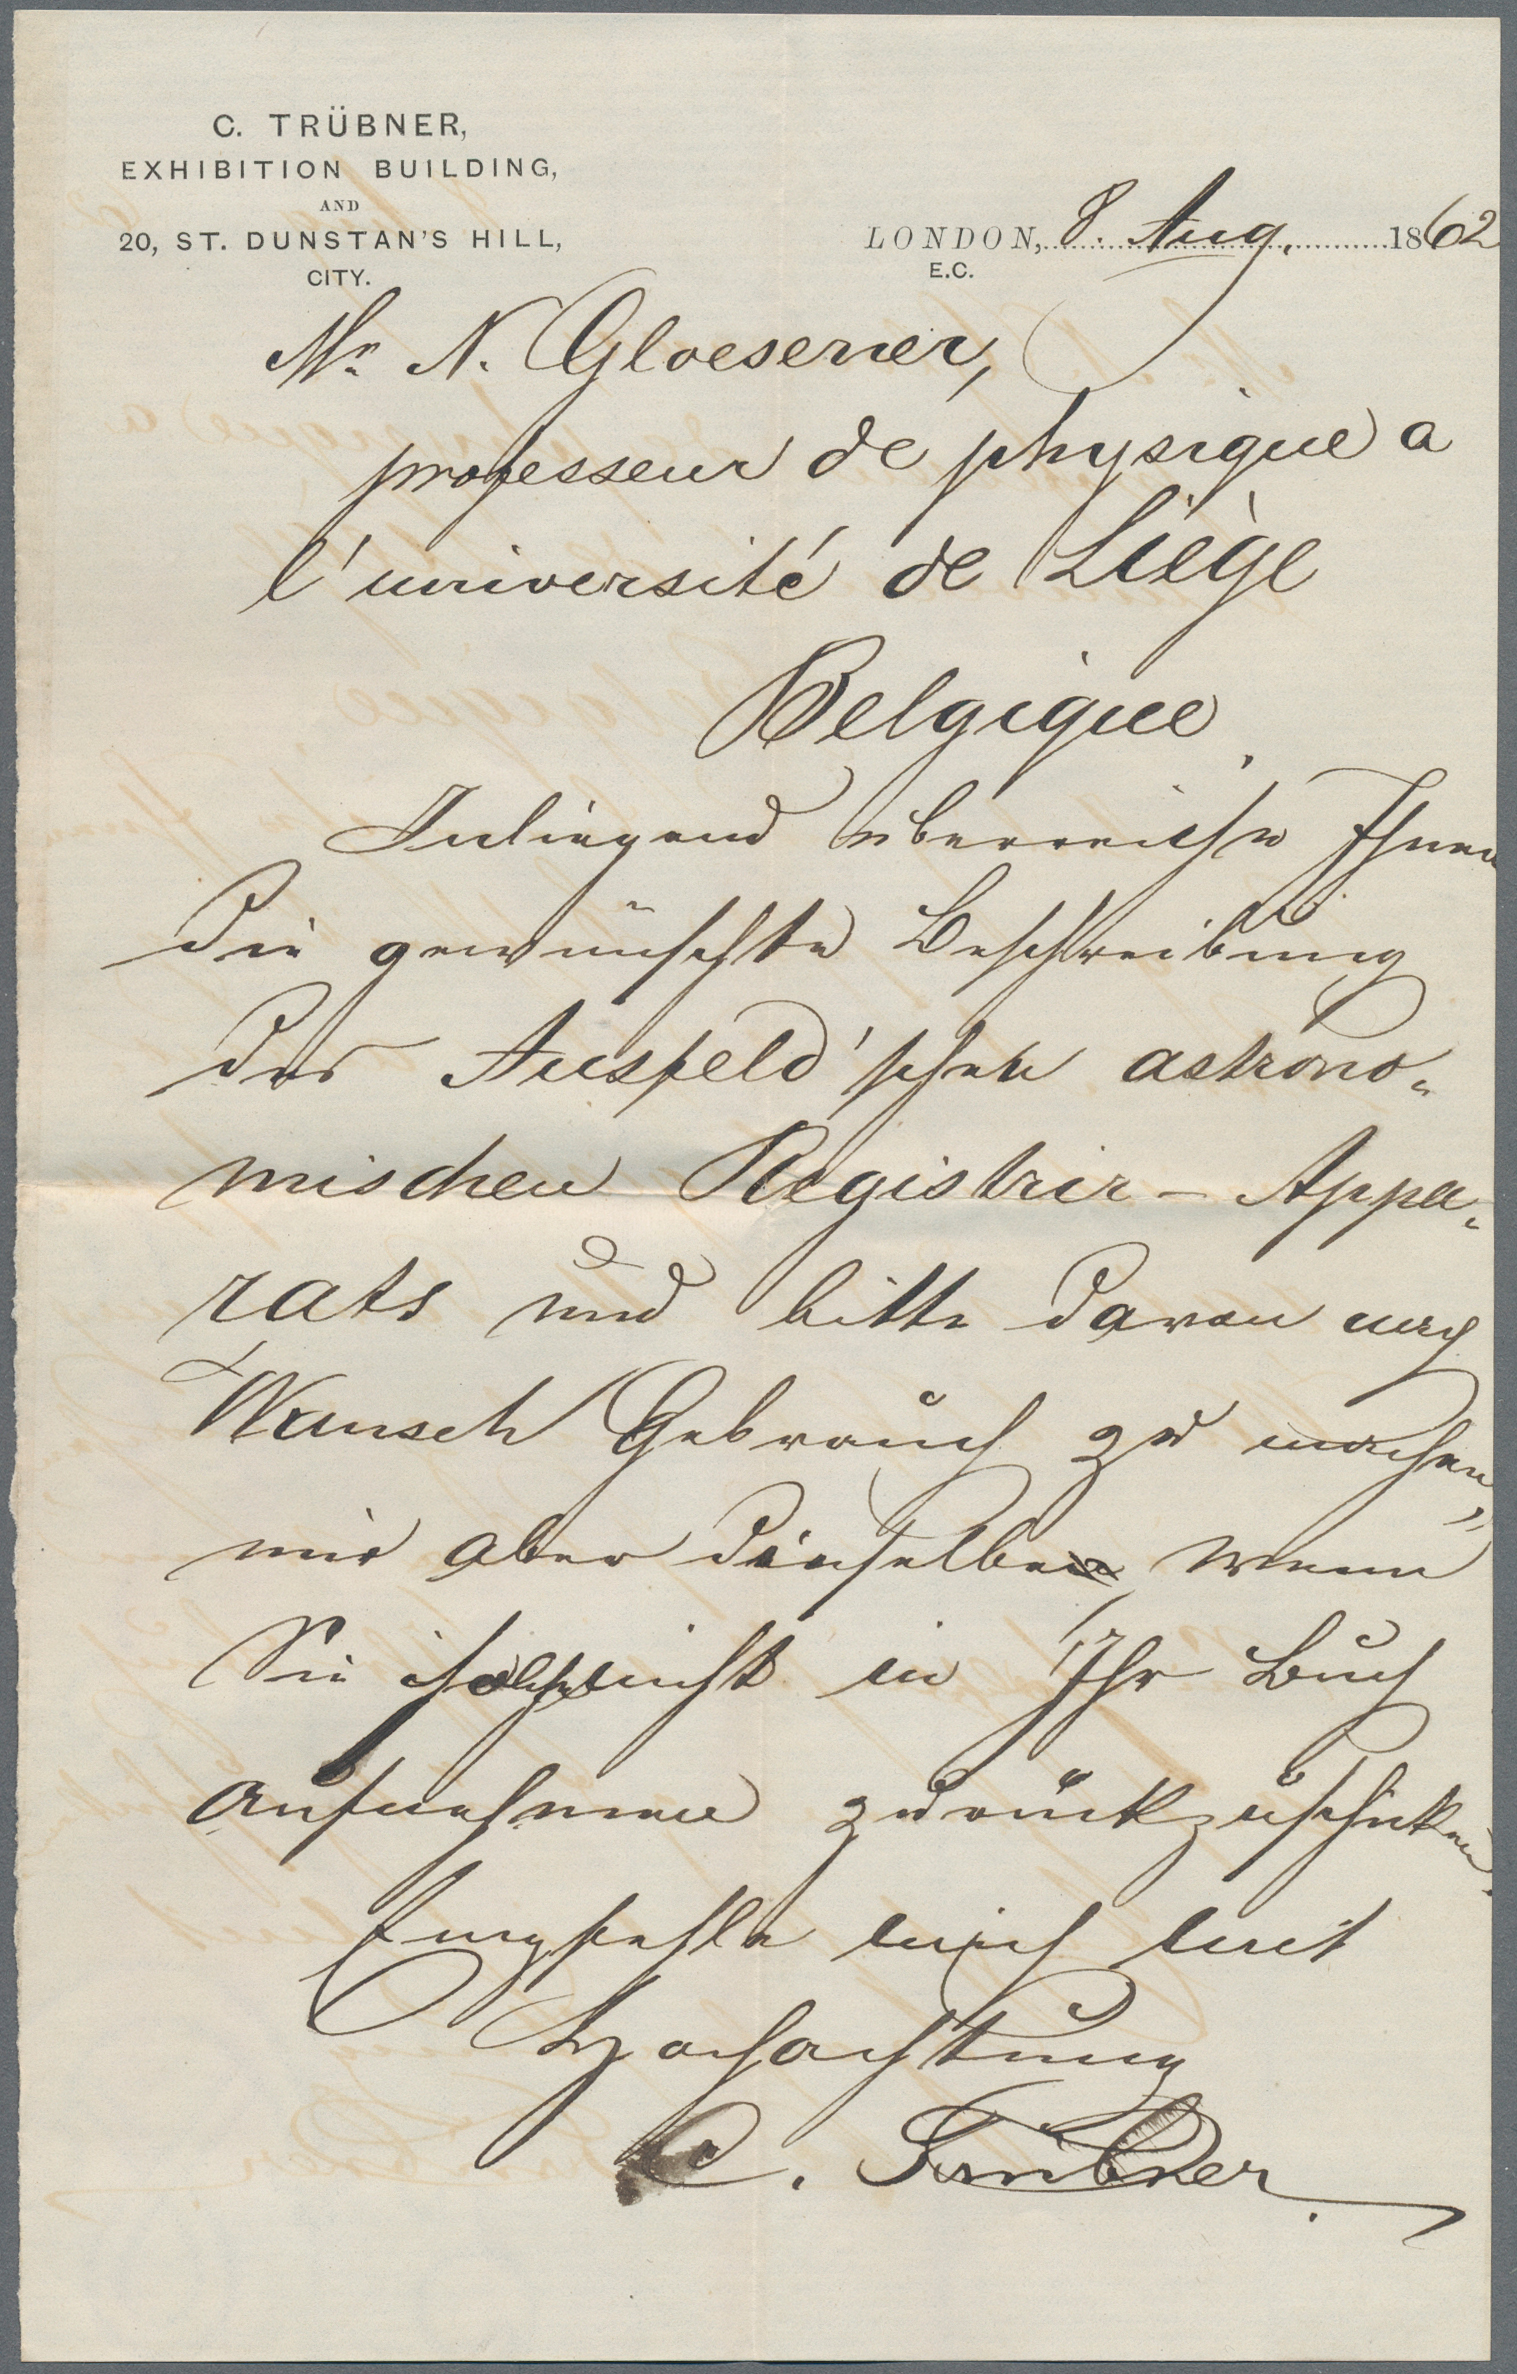 C. TRÜBNER,
EXHIBITION BUILDING,
AND
20, ST. DUNSTAN'S HILL,
CITY.
LONDON, 8. Aug. 1862
E.C.
Mr. N. Gloesener,
professeur de physique a
l'université de Liège
Belgique.
Inliegend überreiche Ihnen
die gewünschte Beschreibung
des Ausfeld'schen astrono-
mischen Registrir-Appa-
rats und bitte davon nach
Wunsch Gebrauch zu machen,
mir aber dieselbe, wenn
Sie solche nicht in Ihr Buch
aufnehmen zurückzuschicken.
Empfehle mich mit
Hochachtung
C. Trübner.